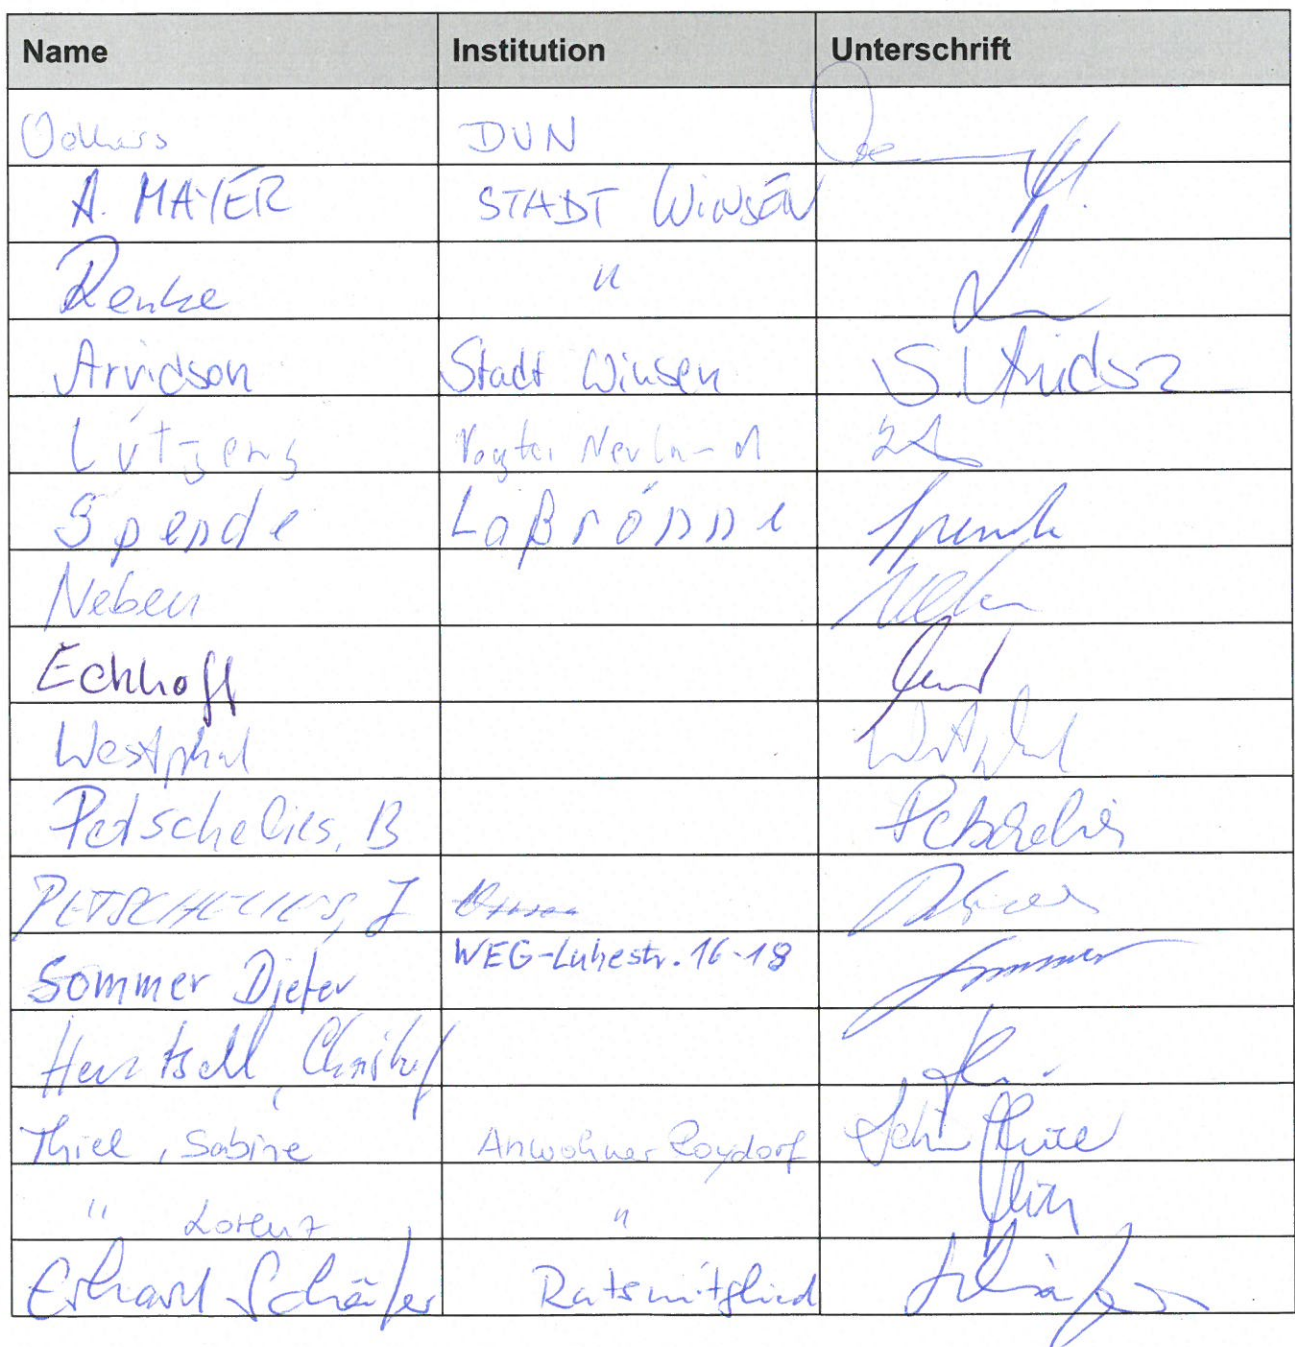 Name Institution Unterschrift
Volkers DVN
A. MAYER STADT WINSEN
Renke "
Arvidson Stadt Winsen S. Arvidson
Lütjens Vogtei Neuland
Spende Laßrönne Spende
Neben Neben
Eckhoff
Westphal Westphal
Petschelies, B Petschelies
PETSCHELIES, J
Sommer Dieter WEG-Luhestr. 16-18 Sommer
Hentschel, Christof
Thiel, Sabine Anwohner Roydorf
" Lorenz "
Erhard Schäfer Ratsmitglied Schäfer